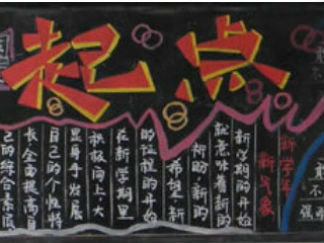 起点
新学年
新气象
新学期的开始
就意味着新的
祈盼新的
希望新
的征程的开始
在新学期里
积极向上,大
显身手发展
自己的个性特
长,全面提高自
己的综合素质